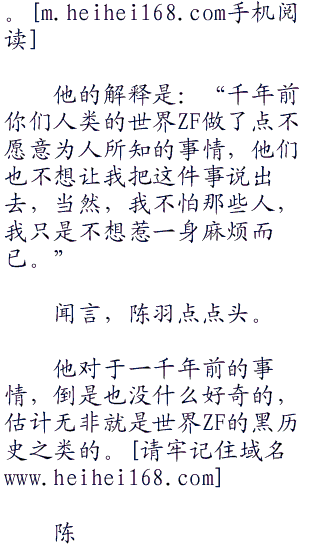 。[m.heihei168.com手机阅
读]
他的解释是：“千年前
你们人类的世界ZF做了点不
愿意为人所知的事情，他们
也不想让我把这件事说出
去，当然，我不怕那些人，
我只是不想惹一身麻烦而
已。”
闻言，陈羽点点头。
他对于一千年前的事
情，倒是也没什么好奇的，
估计无非就是世界ZF的黑历
史之类的。[请牢记住域名
www.heihei168.com]
陈